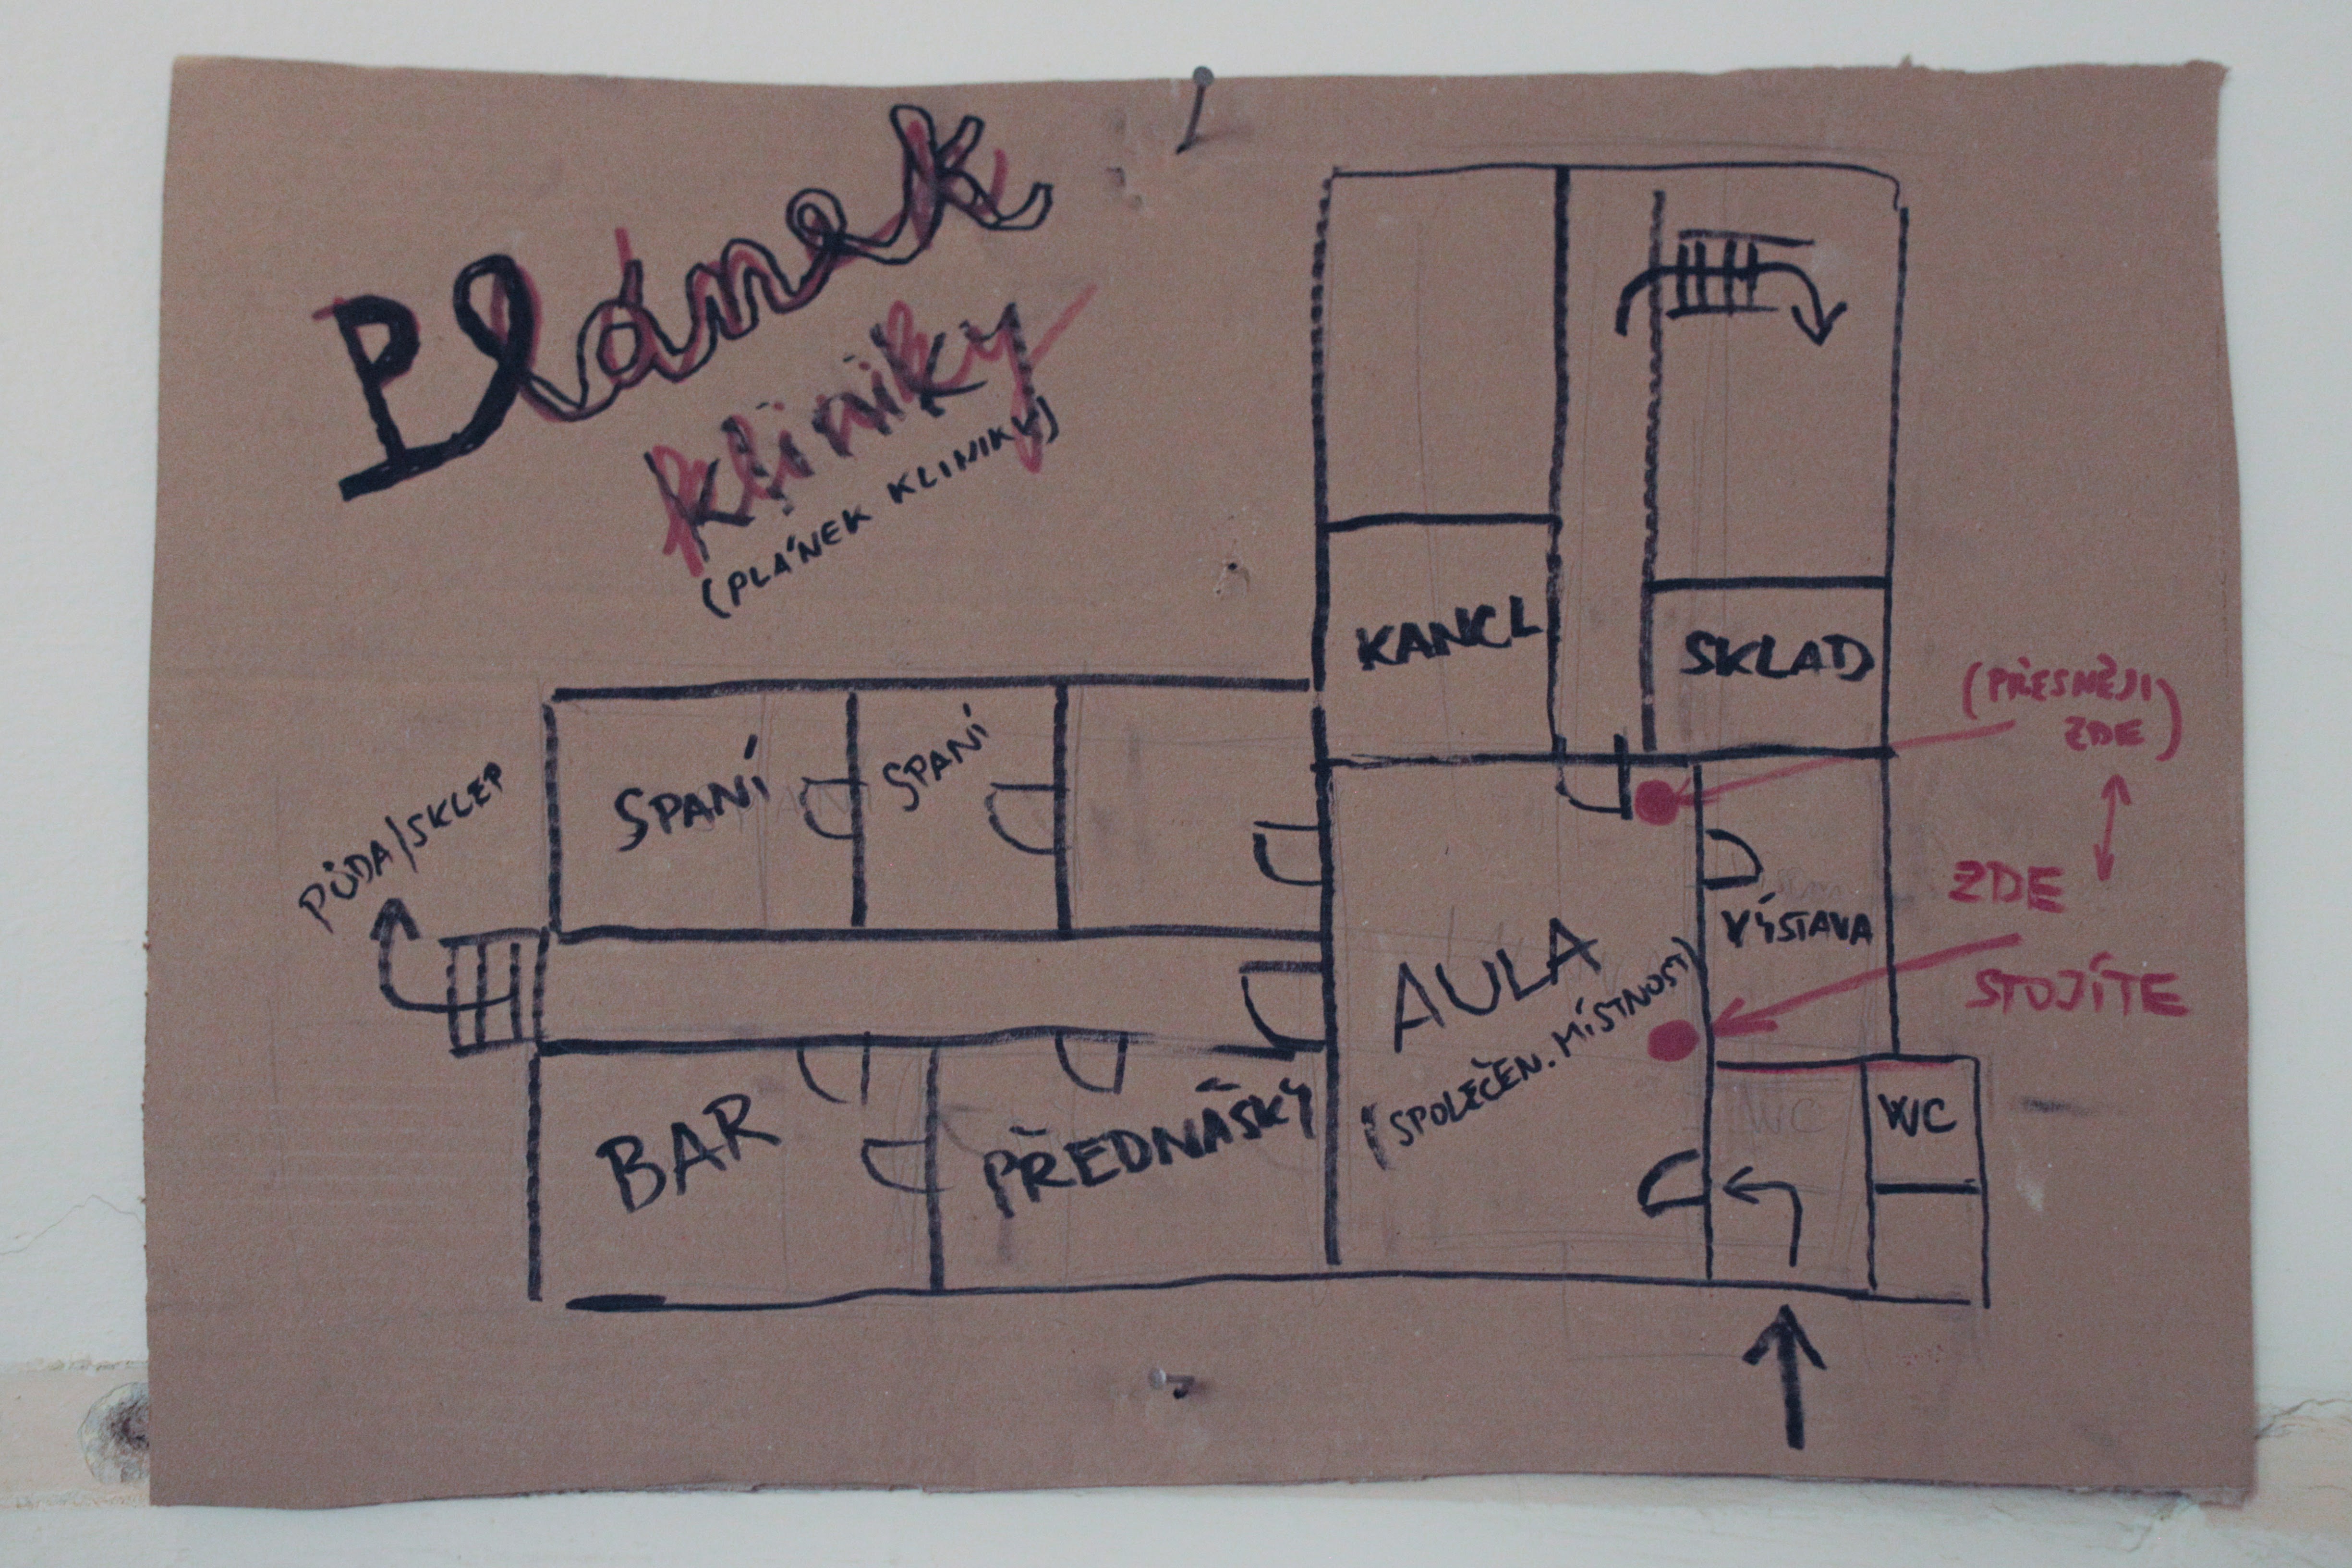 Plánek
kliniky
(PLÁNEK KLINIKY)
KANCL
SKLAD
(PŘESNĚJI
ZDE)
SPANÍ
SPANÍ
PŮDA/SKLEP
ZDE
STOJÍTE
VÝSTAVA
AULA
(SPOLEČEN. MÍSTNOST)
BAR
PŘEDNÁŠKY
WC
WC